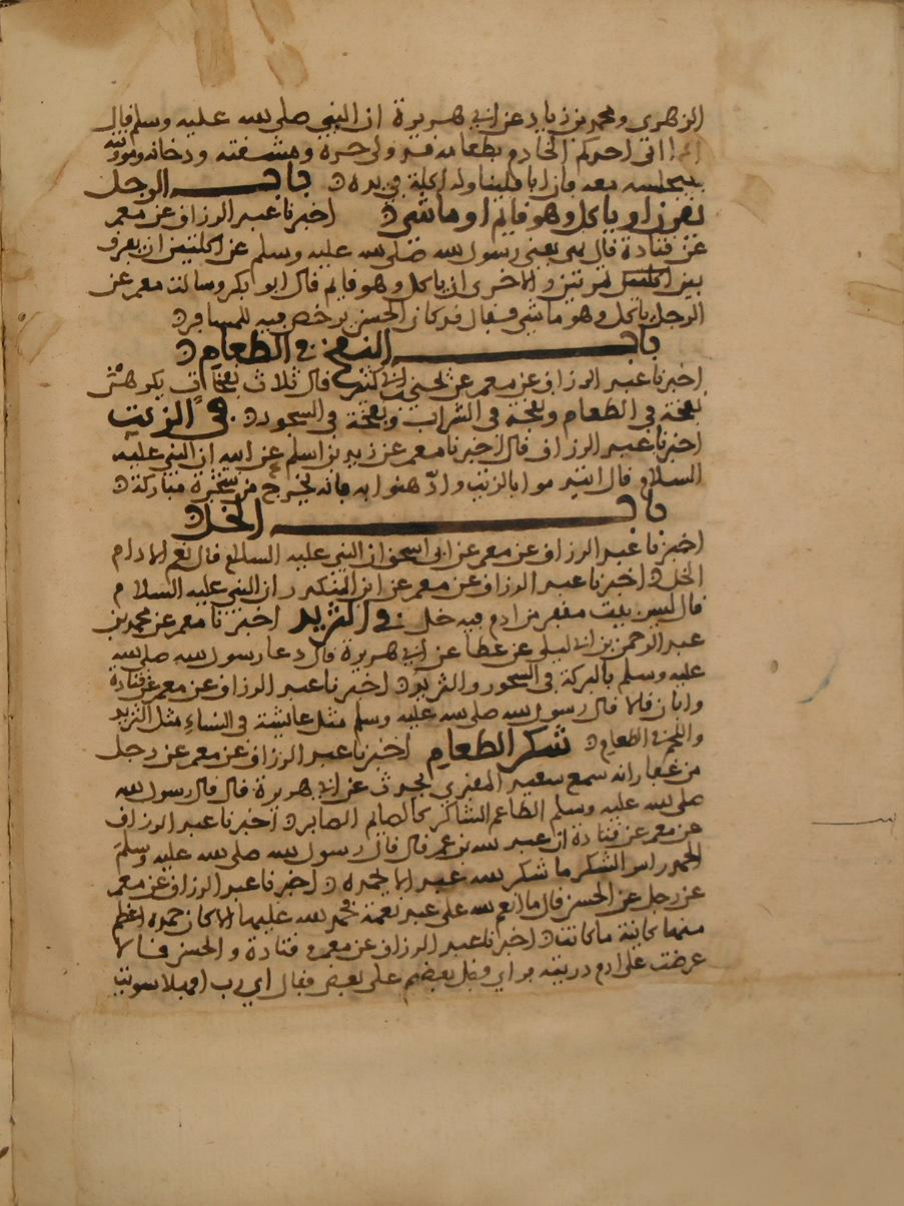 الزهري ومحمد بن زياد عن ابي هريرة ان النبي صلى الله عليه وسلم قال
اذا اتى احدكم الخادم بطعامه قد ولي حره ومشقته ودخانه ومونته
فليجلسه معه فان ابا فليناوله اكلة في يده باب الرجل
يقرن او ياكل وهو قايم او ماشي اخبرنا عبد الرزاق عن معمر
عن قتادة قال نهى يعني رسول الله صلى الله عليه وسلم عن اكلتين ان يقرن
بين تمرتين والاخرى ان ياكل وهو قايم قال ابو بكر وسالت معمر عن
الرجل ياكل وهو ماشي فقال قد كان الحسن يرخص فيه للمسافر
باب النفخ في الطعام
اخبرنا عبد الرزاق عن معمر عن يحيى بن ابي كثير قال ثلاث نفخات يكرهن
نفخة في الطعام ونفخة في الشراب ونفخة في السجود في الزيت
اخبرنا عبد الرزاق قال اخبرنا معمر عن زيد بن اسلم عن ابيه ان النبي عليه
السلام قال ايتدموا بالزيت وادهنوا به فانه يخرج من شجرة مباركة
باب الخل
اخبرنا عبد الرزاق عن معمر عن ابي اسحق ان النبي عليه السلام قال نعم الادام
الخل اخبرنا عبد الرزاق عن معمر عن ابن المنكدر ان النبي عليه السلام
قال ليس بيت مفقر من ادم فيه خل في الثريد اخبرنا معمر عن محمد بن
عبد الرحمن بن ابي ليلى عن عطا عن ابي هريرة قال دعا رسول الله صلى الله
عليه وسلم بالبركة في السحور والثريد اخبرنا عبد الرزاق عن معمر عن قتادة
وابان قالا قال رسول الله صلى الله عليه وسلم مثل عايشة في النساء مثل الثريد
واللحم في الطعام شكر الطعام اخبرنا عبد الرزاق عن معمر عن رجل
من غفار انه سمع سعيد المقبري يحدث عن ابي هريرة قال قال رسول الله
صلى الله عليه وسلم الطاعم الشاكر كالصايم الصابر اخبرنا عبد الرزاق
عن معمر عن قتادة ان عبد الله بن عمر قال قال رسول الله صلى الله عليه وسلم
الحمد راس الشكر ما شكر الله عبد لا يحمده اخبرنا عبد الرزاق عن معمر
عن رجل عن الحسن قال ما انعم الله على عبد نعمة فحمد الله عليها الا كان حمده اعظم
منها كاينة ما كانت اخبرنا عبد الرزاق عن معمر وقتادة والحسن قالا
عرضت على ادم ذريته فراى فضل بعضهم على بعض فقال اي رب افهلا سويت